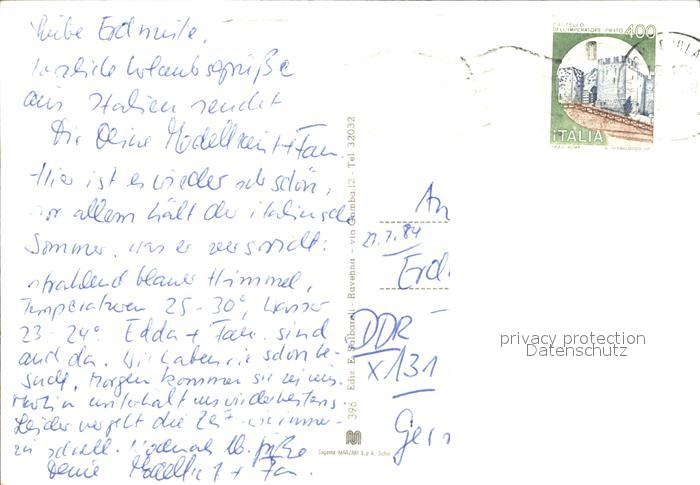 Liebe Erdmute,
herzliche Urlaubsgrüße
aus Italien sendet
Dir Deine + Fam.
Hier ist es wieder sehr schön,
vor allem hält der italienische
Sommer, was er verspricht:
strahlend blauer Himmel,
Temperaturen 25 - 30°, Wasser
23 - 24° Edda + Fam. sind
auch da. Wir haben sie schon be-
sucht, morgen kommen sie zu uns.
unterhält uns wieder bestens.
Leider vergeht die Zeit wie immer
zu schnell. Nochmals lb. Grüße
Deine + Fam.
396 Ediz. Ravenna - via Gamba, 12 - Tel 32032
CASTELLO
DELL'IMPERATORE PRATO 400
ITALIA
An
27.7.84
Erd
DDR -
X131
Ger
privacy protection
Datenschutz